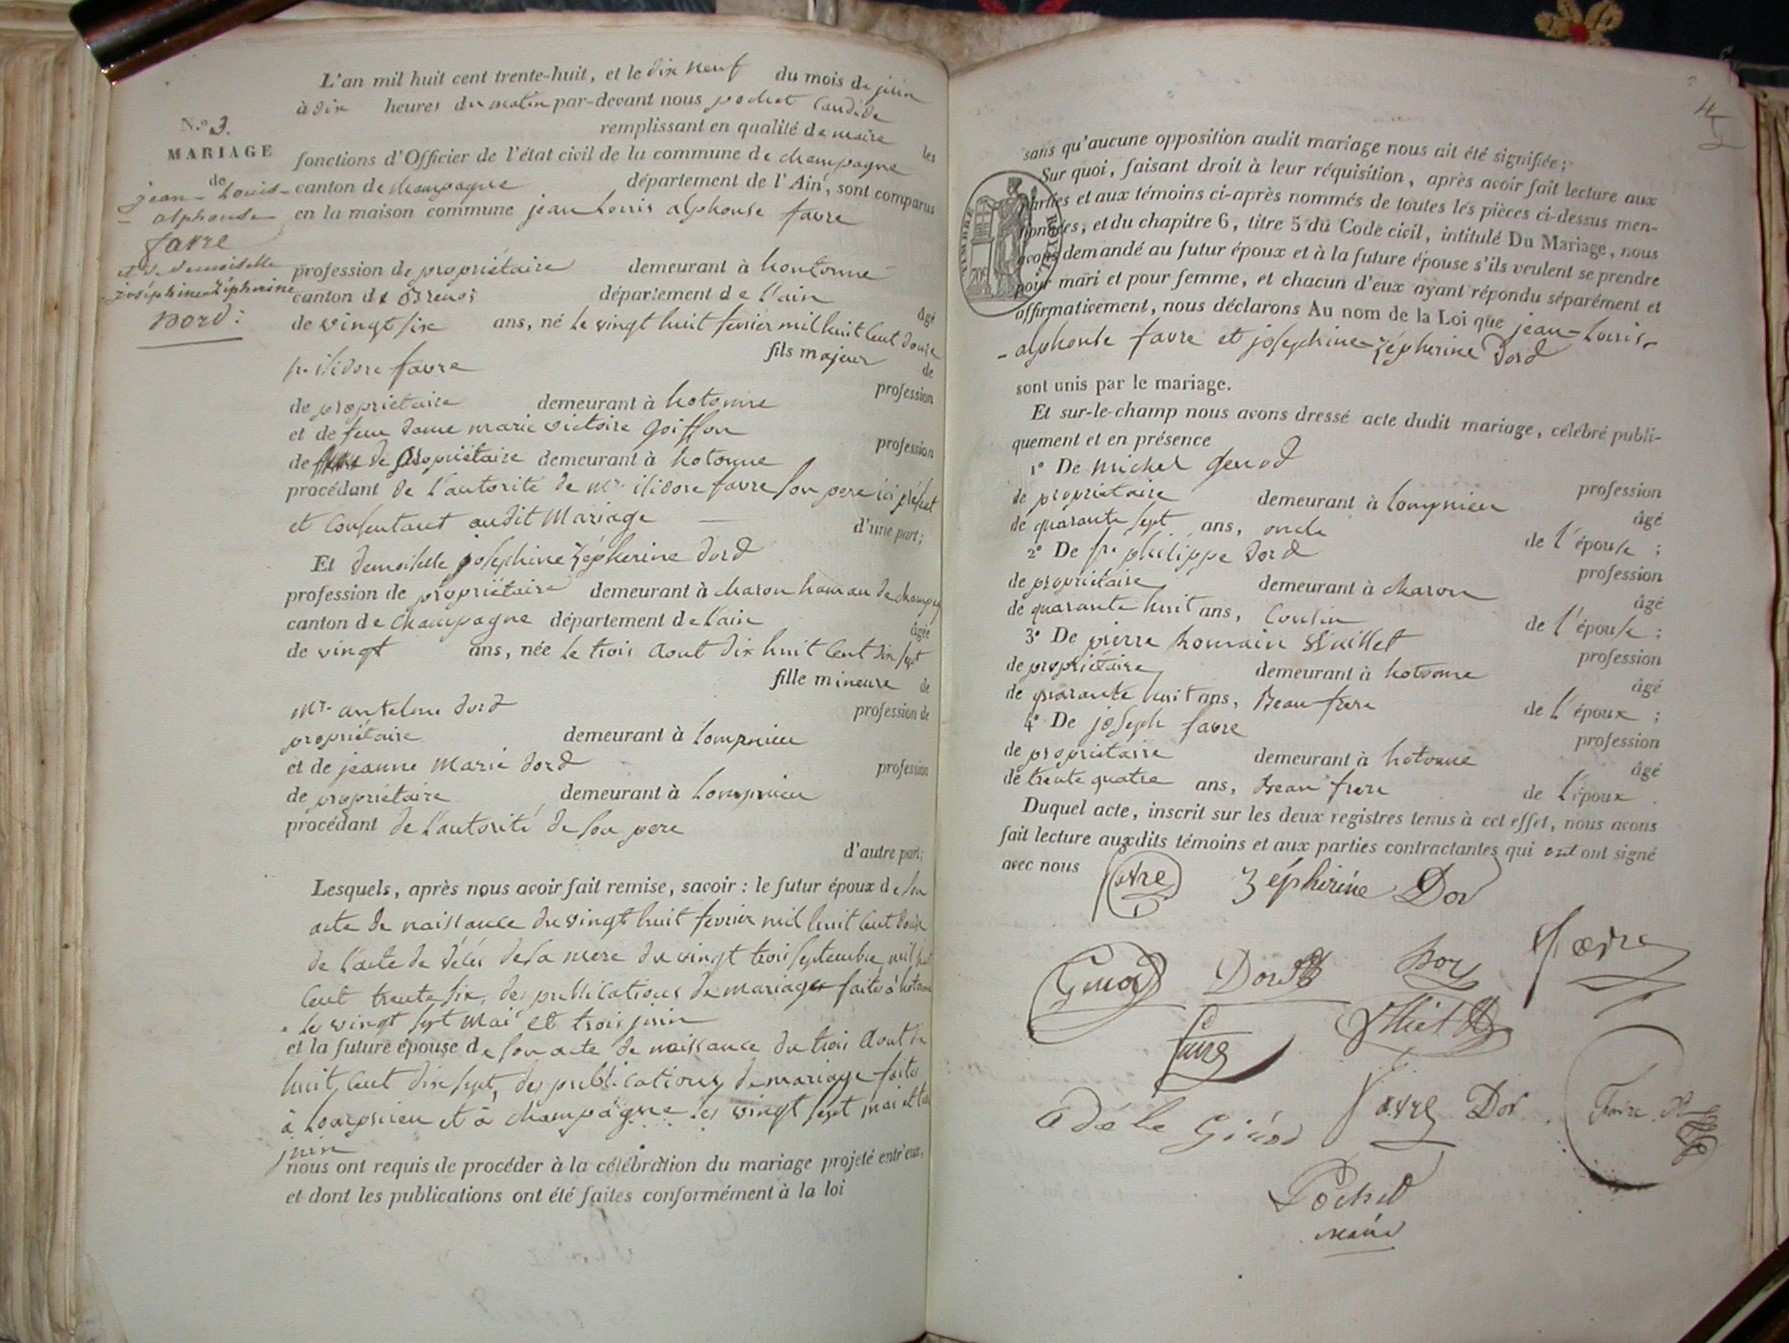 L'an mil huit cent trente-huit, et le dix neuf du mois de juin
à dix heures du matin par-devant nous pochet Candide
remplissant en qualité de maire les
fonctions d'Officier de l'état civil de la commune de champagne
canton de champagne département de l'Ain, sont comparus
en la maison commune jean Louis alphonse favre
N.o 3.
MARIAGE
de
jean-Louis-
alphonse
favre
et de demoiselle
joséphine Zépherine
Dord:
profession de propriétaire demeurant à hontonne
canton de Brenos département de l'ain
âgé
de vingt six ans, né le vingt huit fevrier mil huit Cent douze
fils majeur de
isidore favre
profession
de propriétaire demeurant à hotonne
et de feue dame marie victoire Goiffon
profession
de propriétaire demeurant à hotonne
procédant de l'autorité de Mr isidore favre son pere ici présent
et Consentant audit Mariage
d'une part;
Et demoiselle josephine Zépherine dord
profession de propriétaire demeurant à charon hameau de champagne
canton de Champagne département de l'ain
âgée
de vingt ans, née le trois aout dix huit Cent dix sept
fille mineure de
Mr. antelme dord
profession de
propriétaire demeurant à Lompnieu
et de jeanne Marie dord
profession
de propriétaire demeurant à Lompnieu
procédant de l'autorité de son pere
d'autre part;
Lesquels, après nous avoir fait remise, savoir: le futur époux de son
acte de naissance du vingt huit fevrier mil huit Cent douze
de l'acte de décés de sa mere du vingt trois septembre mil huit
Cent trente six, des publications de mariage faites à hotonne
les vingt sept Mai et trois juin
et la future épouse de son acte de naissance du trois Aout dix
huit Cent dix sept, des publications de mariage faites
à Lompnieu et à champagne les vingt sept mai et trois
juin
nous ont requis de procéder à la célébration du mariage projeté entr'eux,
et dont les publications ont été faites conformément à la loi
sans qu'aucune opposition audit mariage nous ait été signifiée;
Sur quoi, faisant droit à leur réquisition, après avoir fait lecture aux
parties et aux témoins ci-après nommés de toutes les pièces ci-dessus men-
tionnées, et du chapitre 6, titre 5 du Code civil, intitulé Du Mariage, nous
avons demandé au futur époux et à la future épouse s'ils veulent se prendre
pour mari et pour femme, et chacun d'eux ayant répondu séparément et
affirmativement, nous déclarons Au nom de la Loi que jean-Louis-
-alphonse favre et josephine-Zépherine dord
sont unis par le mariage.
Et sur-le-champ nous avons dressé acte dudit mariage, célébré publi-
quement et en présence
1º De michel Genod
profession
de propriétaire demeurant à Lompnieu
âgé
de quarante sept ans, oncle de l'épouse;
2º De fr. philippe dord
profession
de propriétaire demeurant à charon
âgé
de quarante huit ans, Cousin de l'épouse;
3º De pierre Romain
profession
de propriétaire demeurant à hotonne
âgé
de quarante huit ans, Beau frere de l'époux;
4º De joseph favre
profession
de propriétaire demeurant à hotonne
âgé
de trente quatre ans, Beau frere de l'époux.
Duquel acte, inscrit sur les deux registres tenus à cet effet, nous avons
fait lecture auxdits témoins et aux parties contractantes qui ont signé
avec nous
favre Zépherine Dord
Genod Dord Dord favre
favre
Adèle Girod favre Dord Favre
Pochet
maire